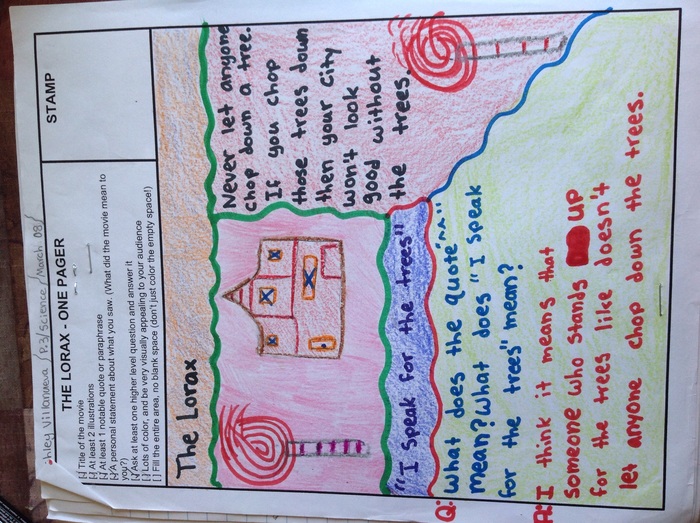 hley Villanueva / P.3/Science / March 08/
THE LORAX - ONE PAGER
STAMP
[] Title of the movie
[] At least 2 illustrations
[] At least 1 notable quote or paraphrase
[] A personal statement about what you saw. (What did the movie mean to
you?)
[] Ask at least one higher level question and answer it
[] Lots of color, and be very visually appealing to your audience
[] Fill the entire area, no blank space (don't just color the empty space!)
The Lorax
Never let anyone
chop down a tree.
If you chop
those trees down
then your City
won't look
good without
the trees.
"I Speak for the trees"
Q: What does the quote
mean? What does "I Speak
for the trees" mean?
A: I think it means that
someone who stands up
for the trees like doesn't
let anyone chop down the trees.